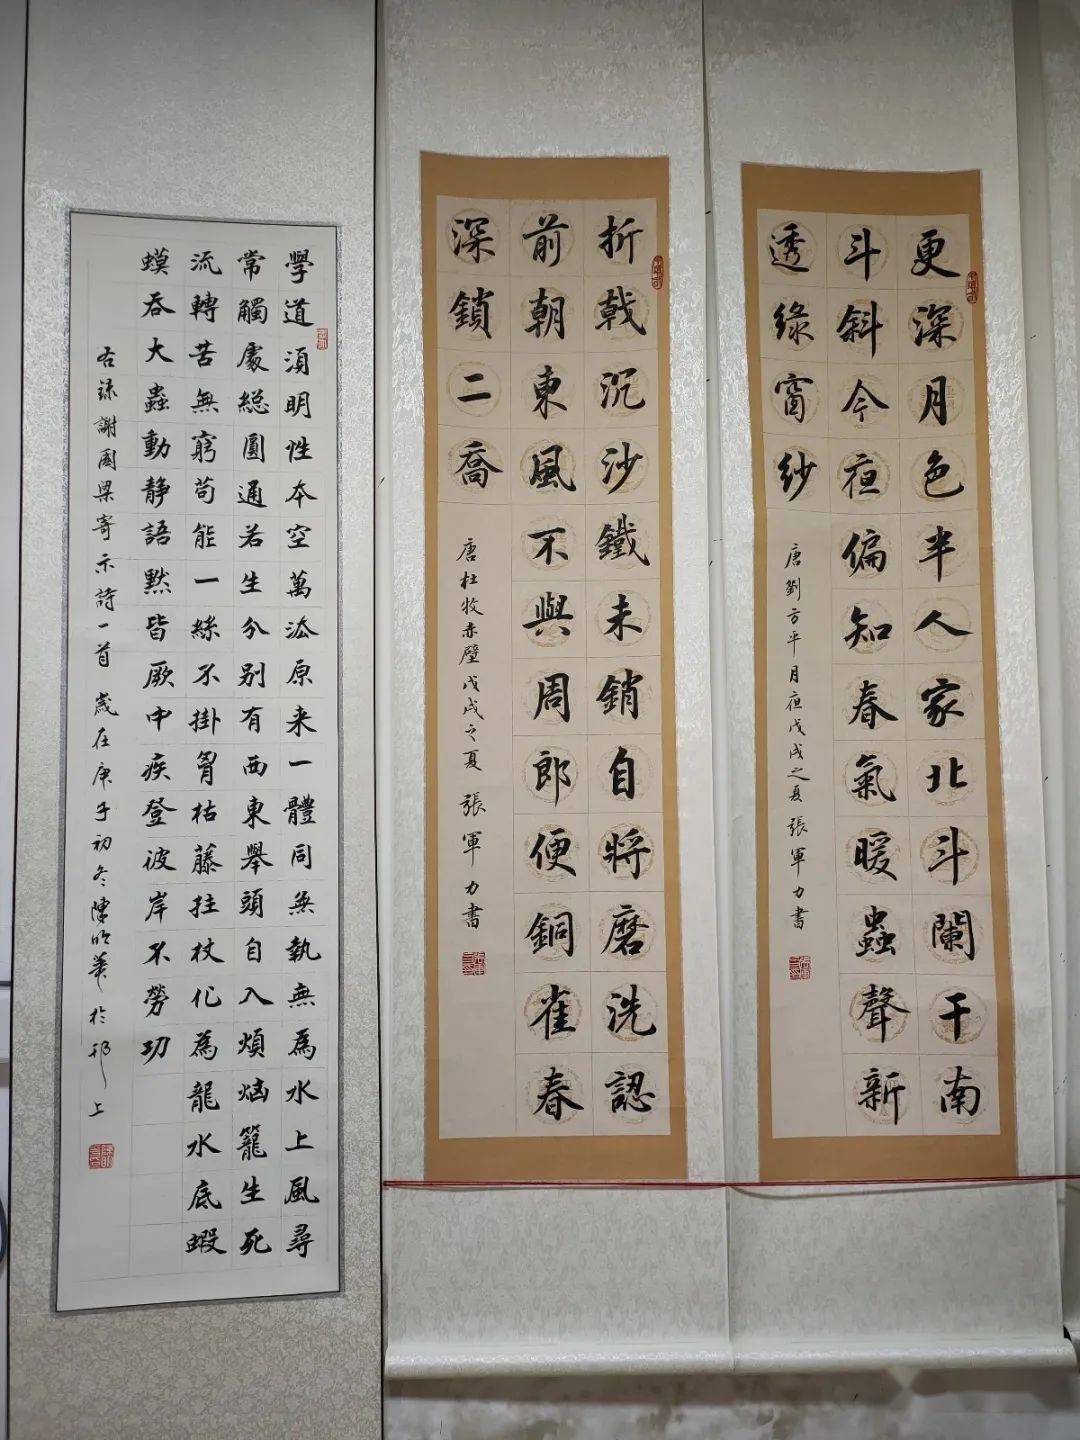 更深月色半人家北斗闌干南
斗斜今夜偏知春氣暖蟲聲新
透綠窗紗
唐劉方平月夜戊戌之夏張軍力書
折戟沉沙鐵未銷自將磨洗認
前朝東風不與周郎便銅雀春
深鎖二喬
唐杜牧赤壁戊戌之夏 張軍力書
學道須明性本空萬泒原来一體同無執無為水上風尋
常觸處総圓通若生分别有西東舉頭自入煩惱籠生死
流轉苦無窮苟能一絲不掛胷枯藤拄杖化為龍水底蝦
蟆吞大蟲動静語默皆厥中疾登彼岸不勞功
右録謝國梁寄示詩一首 歲在庚子初冬陳於邗上